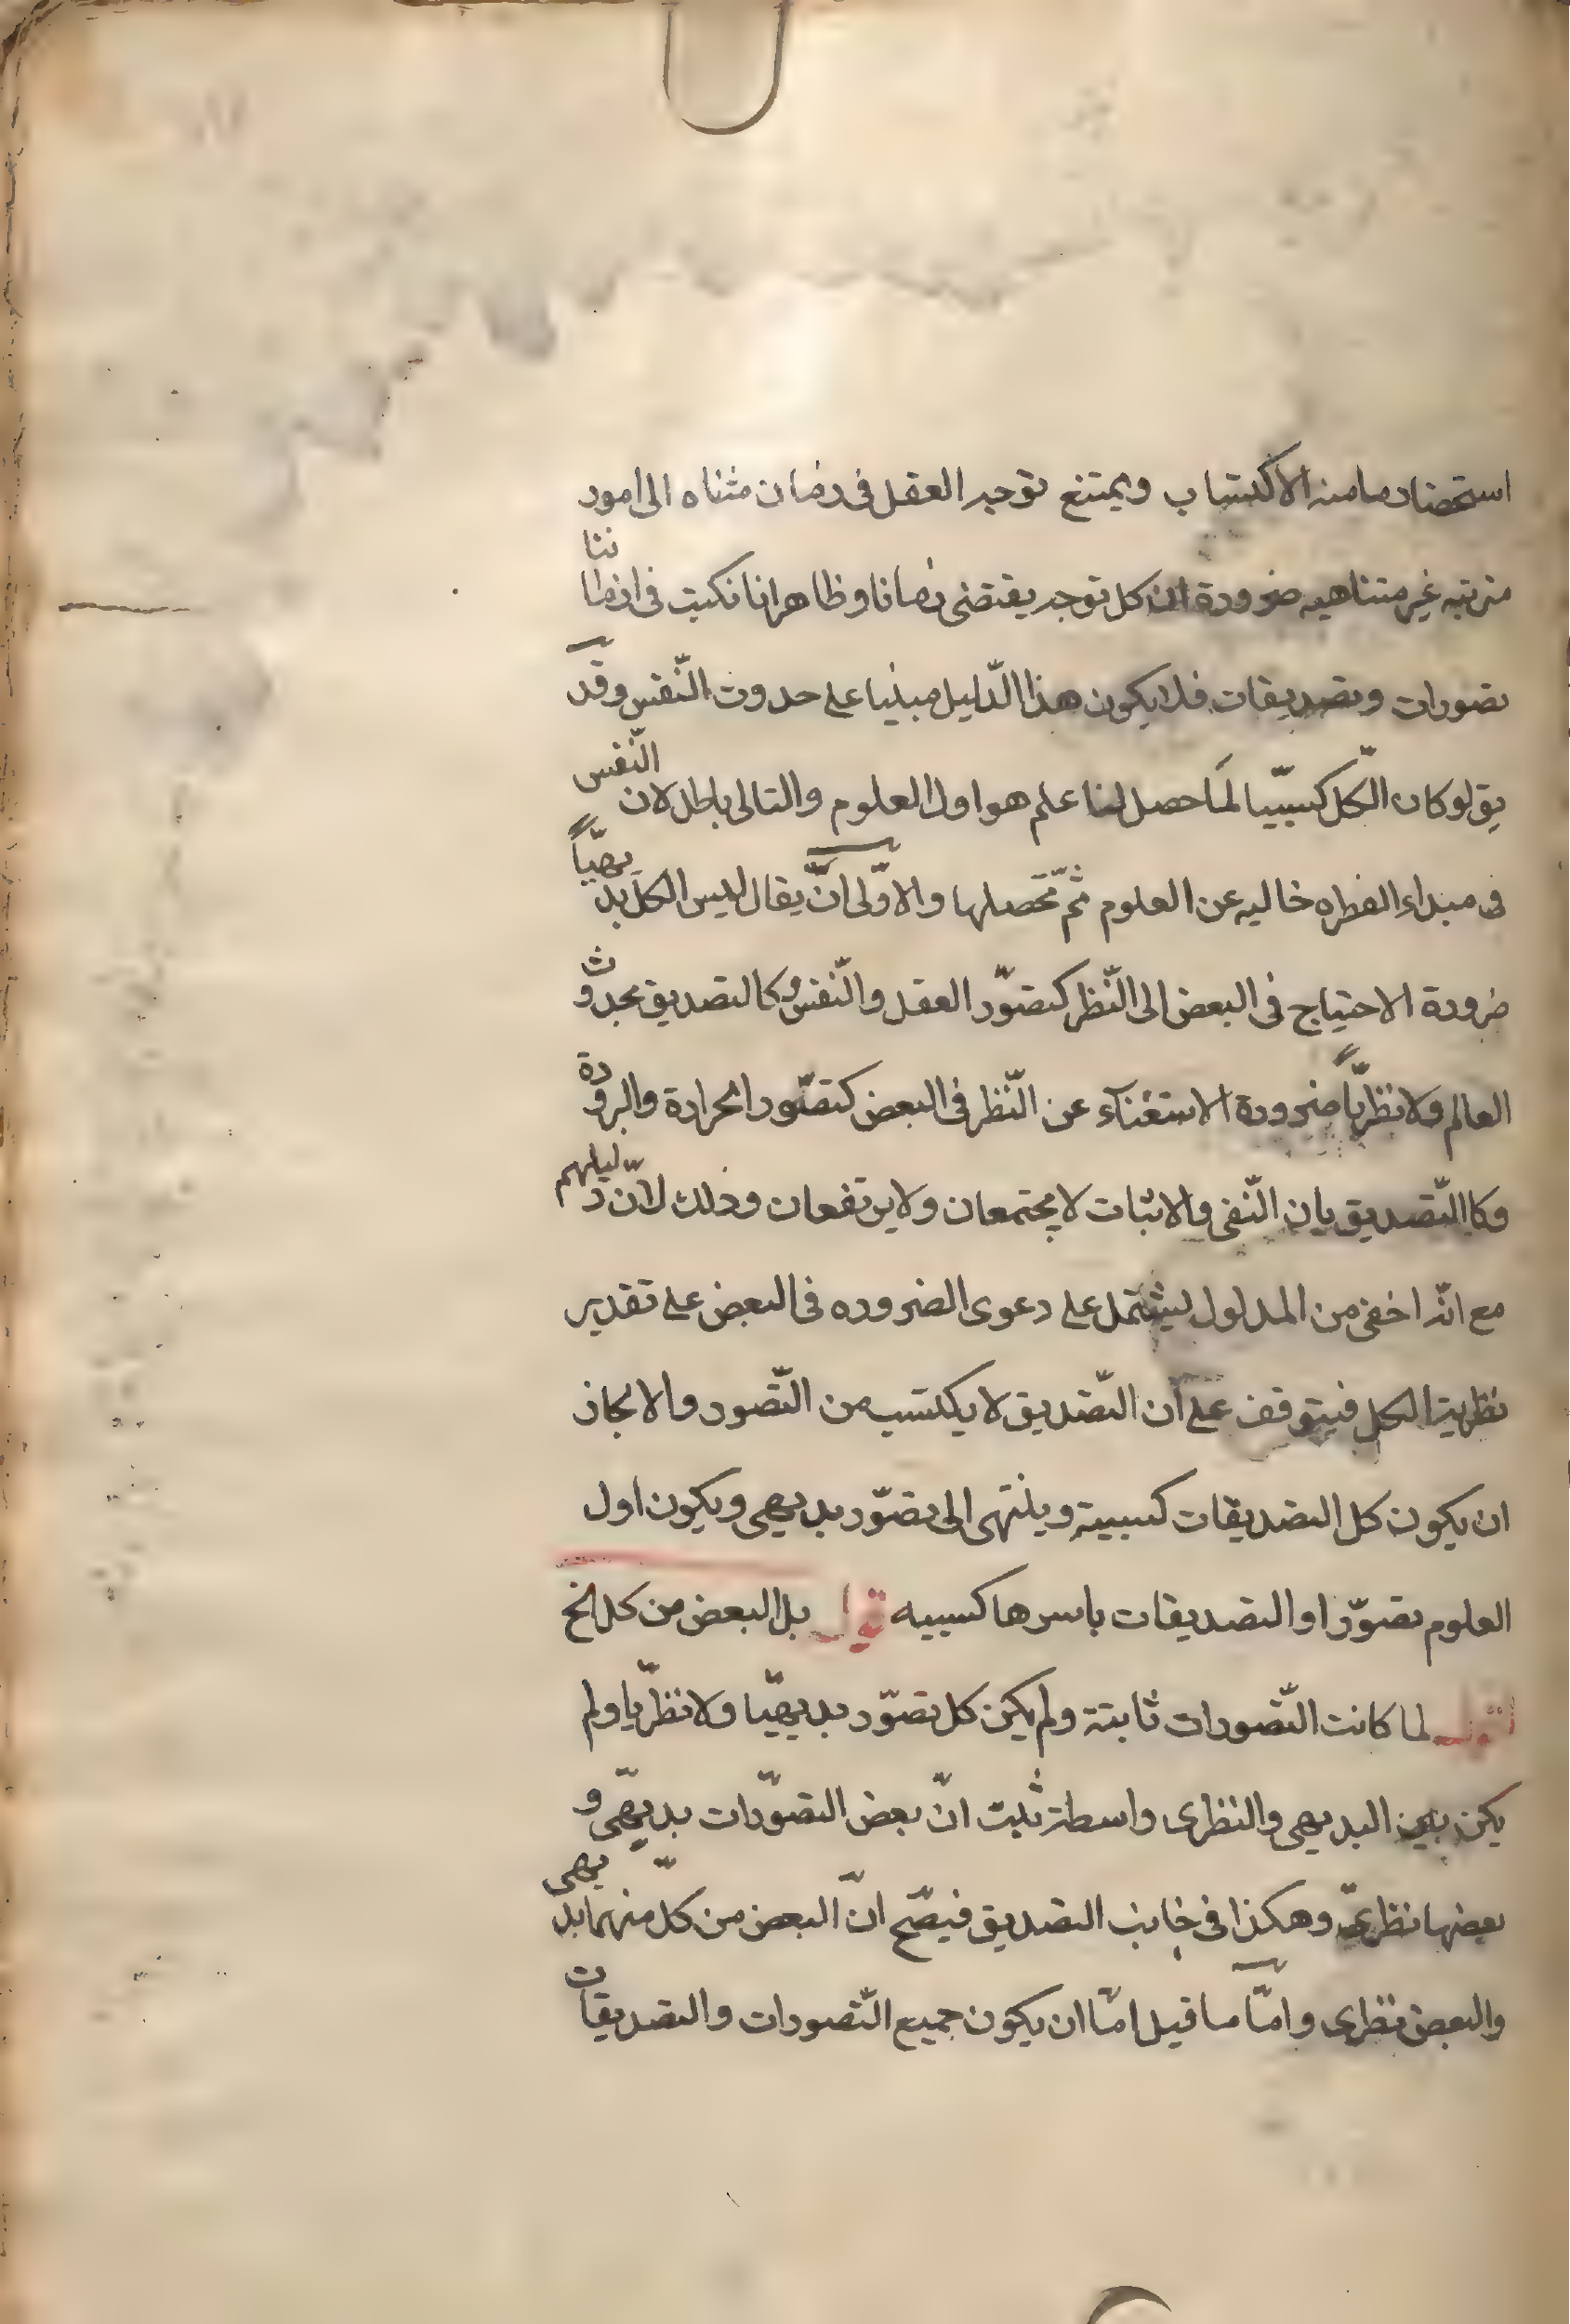 استحضار ما منه الاكتساب ويمتنع توجه العقل فى زمان متناه الى امور
مترتبه غير متناهيه ضرورة ان كل توجه يقتضى زمانا وظاهر انا نكتب فى ازماننا
تصورات وتصديقات فلا يكون هذا الدّليل مبنيا على حدوث النّفس وقد
يق لو كان الكلّ كسبيّا لمَا حصل لنا علم هو اول العلوم والتالى باطل لان النّفس
فى مبداء الفطره خاليه عن العلوم ثمّ تحصلها والاوّلى انّ يقال ليس الكل بديهيّاً
ضرورة الاحتياج فى البعض الى النّظر كتصوّر العقل والنّفس وكالتصديق بحدوث
العالم ولا نظريّاً ضرورة الاستغنآء عن النّظر فى البعض كتصّور الحرارة والبرودة
وكاالتّصديق بان النّفى والاثبات لا يجتمعان ولا يرتفعان وذلك لانّ دليلهم
مع انّه اخفى من المدلول ليشتمل على دعوى الضروره فى البعض على تقدير
نظرية الكل فيتوقف على ان التّصديق لا يكتسب من التّصور والا لجاز
ان يكون كل التصديقات كسبية وينتهى الى تصوّر بديهى ويكون اول
العلوم تصوّرا والتصديقات باسرها كسبيه قوله بل البعض من كل الخ
اقول لما كانت التّصورات ثابتة ولم يكن كل تصوّر بديهيّا ولا نظريّا ولم
يكن بين البديهى والنظرى واسطة ثبت انّ بعض التصوّرات بديهّى و
بعضها نظرىّ وهكذا فى جانب التصديق فيصّح انّ البعض من كلّ منهما بديهى
والبعض نظرى وامّا ما قيل امّا ان يكون جميع التّصورات والتصديقات